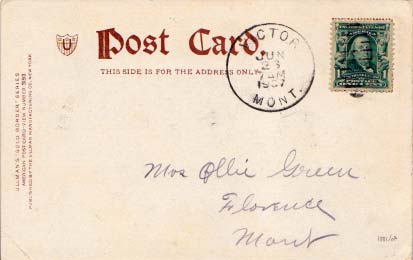 Post Card.
THIS SIDE IS FOR THE ADDRESS ONLY
VICTOR
JUN
23
7 AM
1907
MONT.
1
Mrs Ollie Green
Florence
Mont
ULLMAN'S "GOLD BORDER" SERIES
AMERICAN POST CARD-VIEW NUMBER
PUBLISHED BY THE ULLMAN MANUFACTURING CO. NEW YORK